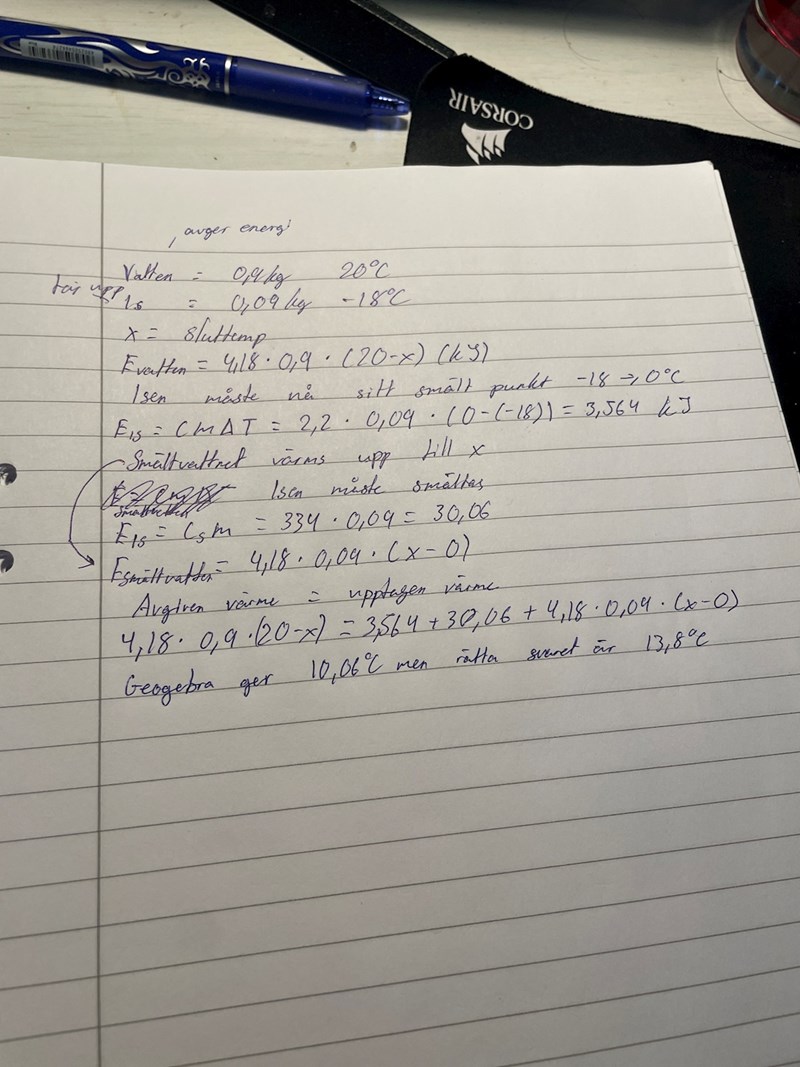 CORSAIR
, avger energi
Vatten = 0,9kg 20°C
tar upp
Is = 0,09kg -18°C
x = sluttemp
Evatten = 4,18 · 0,9 · (20-x) (kJ)
Isen måste nå sitt smält punkt -18 → 0°C
EIS = CMΔT = 2,2 · 0,09 · (0-(-18)) = 3,564 kJ
Smältvattnet värms upp till x
Isen måste smältas
EIS = CsM = 334 · 0,09 = 30,06
Esmältvatten = 4,18 · 0,09 · (x-0)
Avgiven värme = upptagen värme
4,18 · 0,9 · (20-x) = 3,564 + 30,06 + 4,18 · 0,09 · (x-0)
Geogebra ger 10,06°C men rätta svaret är 13,8°C